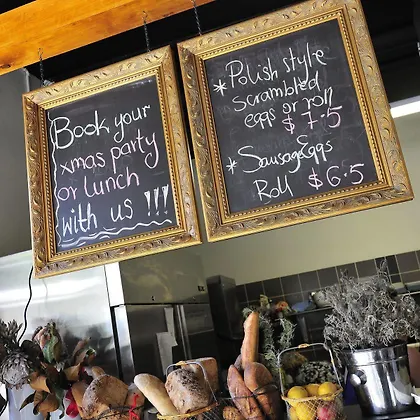 Book your
xmas party
or lunch
with us !!!
* Polish style
scrambled
eggs or roll
$ 7.5
* Sausage Eggs
Roll $6.5